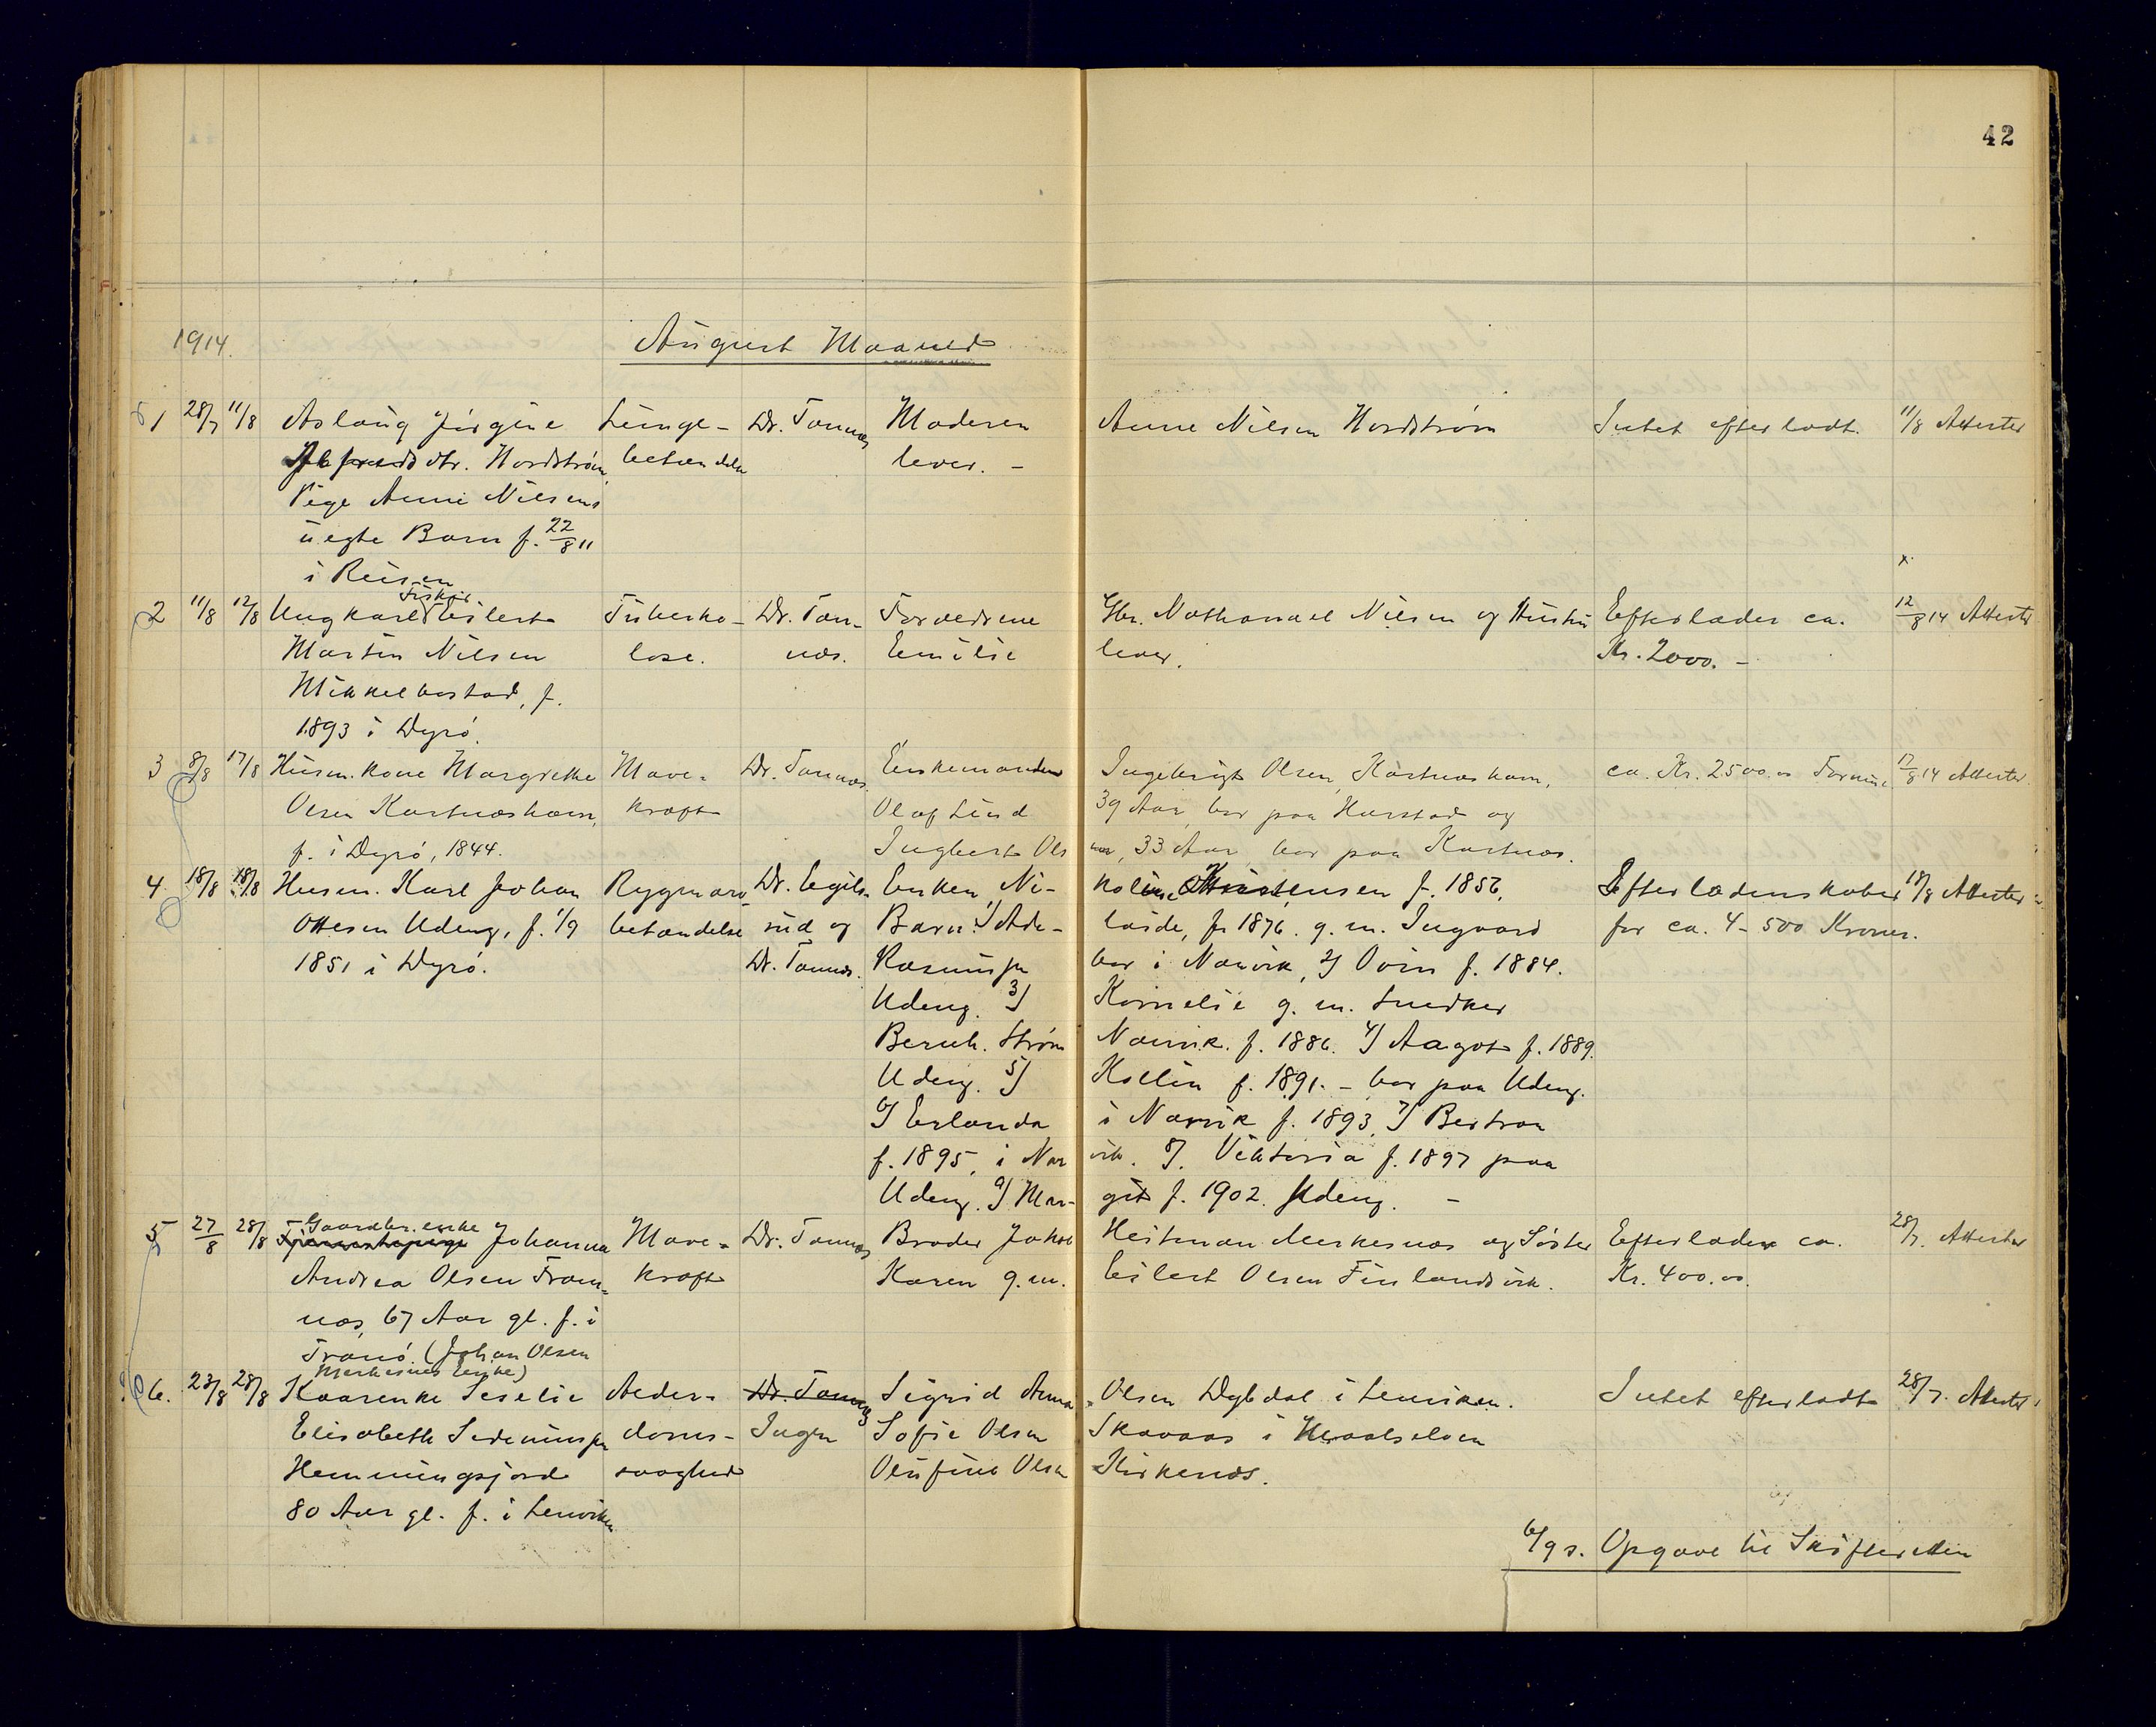 42
1914. August Maaned
1 28/7 11/8 Aslaug Jørgine Lunge- Dr. Tønnæs Moderen Anne Nilsen Nordstrøm Intet efterladt. 11/8 Attester
dtr. Nordstrøm, betændelse lever. -
Pige Anne Nilsens
uegte Barn f. 22/8 11
i Reisen
Fisker x
2 11/8 12/8 Ungkarl Eilert Tuberku- Dr. Tøn- Forældrene Gbr. Nathanael Nilsen og Hustru Efterlader ca. 12/8 14 Attester
Martin Nilsen lose. næs. Emilie lever. Kr. 2000. -
Mikkelbostad, f.
1893 i Dyrø.
3 8/8 17/8 Husm. kone Margrethe Mave- Dr. Tønnæs. Enkemanden Ingebrigt Olsen, Kastneshavn, ca. Kr. 2500.00 Formue 17/8 14 Attester.
Olsen Kastneshavn, kræft Olaf Lind 39 Aar, bor paa Harstad og
f. i Dyrø, 1844. Ingbert Ols 33 Aar, bor paa Kastnæs.
4. 18/8 18/8 Husm. Karl Johan Rygmarv- Dr. Egils- Enken, Ni- koline Christensen f. 1856, Efterladenskaber 18/8 Attester
Ottesen Udeng, f. 1/9 betændelse rud og Barn: 1) Ade- laide, f. 1876. g. m. Ingvard for ca. 4-500 Kroner.
1851 i Dyrø. Dr. Tønnæs. Rasmussen bor i Narvik, 2) Ovin f. 1884.
Udeng. 3) Kornelie g. m. Snedker
Bernh. Strøm Narvik. f. 1886. 4) Aagot f. 1889.
Udeng. 5) Kollin f. 1891. - bor paa Udeng.
6) Erlanda i Narvik f. 1893, 7) Bertran
f. 1895, i Nar vik. 8). Viktoria f. 1897 paa
Udeng. 9) Mar- git f. 1902. Udeng. -
Gaardbr. enke
5 27/8 28/8 Tjenestepige Johanna Mave- Dr. Tønnæs Broder Jakob Heitman Merkesnæs og Søster Efterlader ca. 28/7. Attester
Andrea Olsen Tran- kræft Karen g. m. Eilert Olsen Finlandsvik. Kr. 400.00.
næs, 67 Aar gl. f. i
Tranø. (Johan Olsen
Merkesnes Enke)
6. 23/8 28/8 Kaarenke Seselie Alder- Dr. Tønnæs Sigrid Anna Olsen Dybdal i Lenviken. Intet efterladt 28/7. Attester
Elisabeth doms- Ingen Sofie Olsen Skavaas i Maalselven
Hemmingsjord svaghed Olufine Olsen Kirkenæs.
80 Aar gl. f. i Lenviken
6/9 s. Opgave til Skifteretten